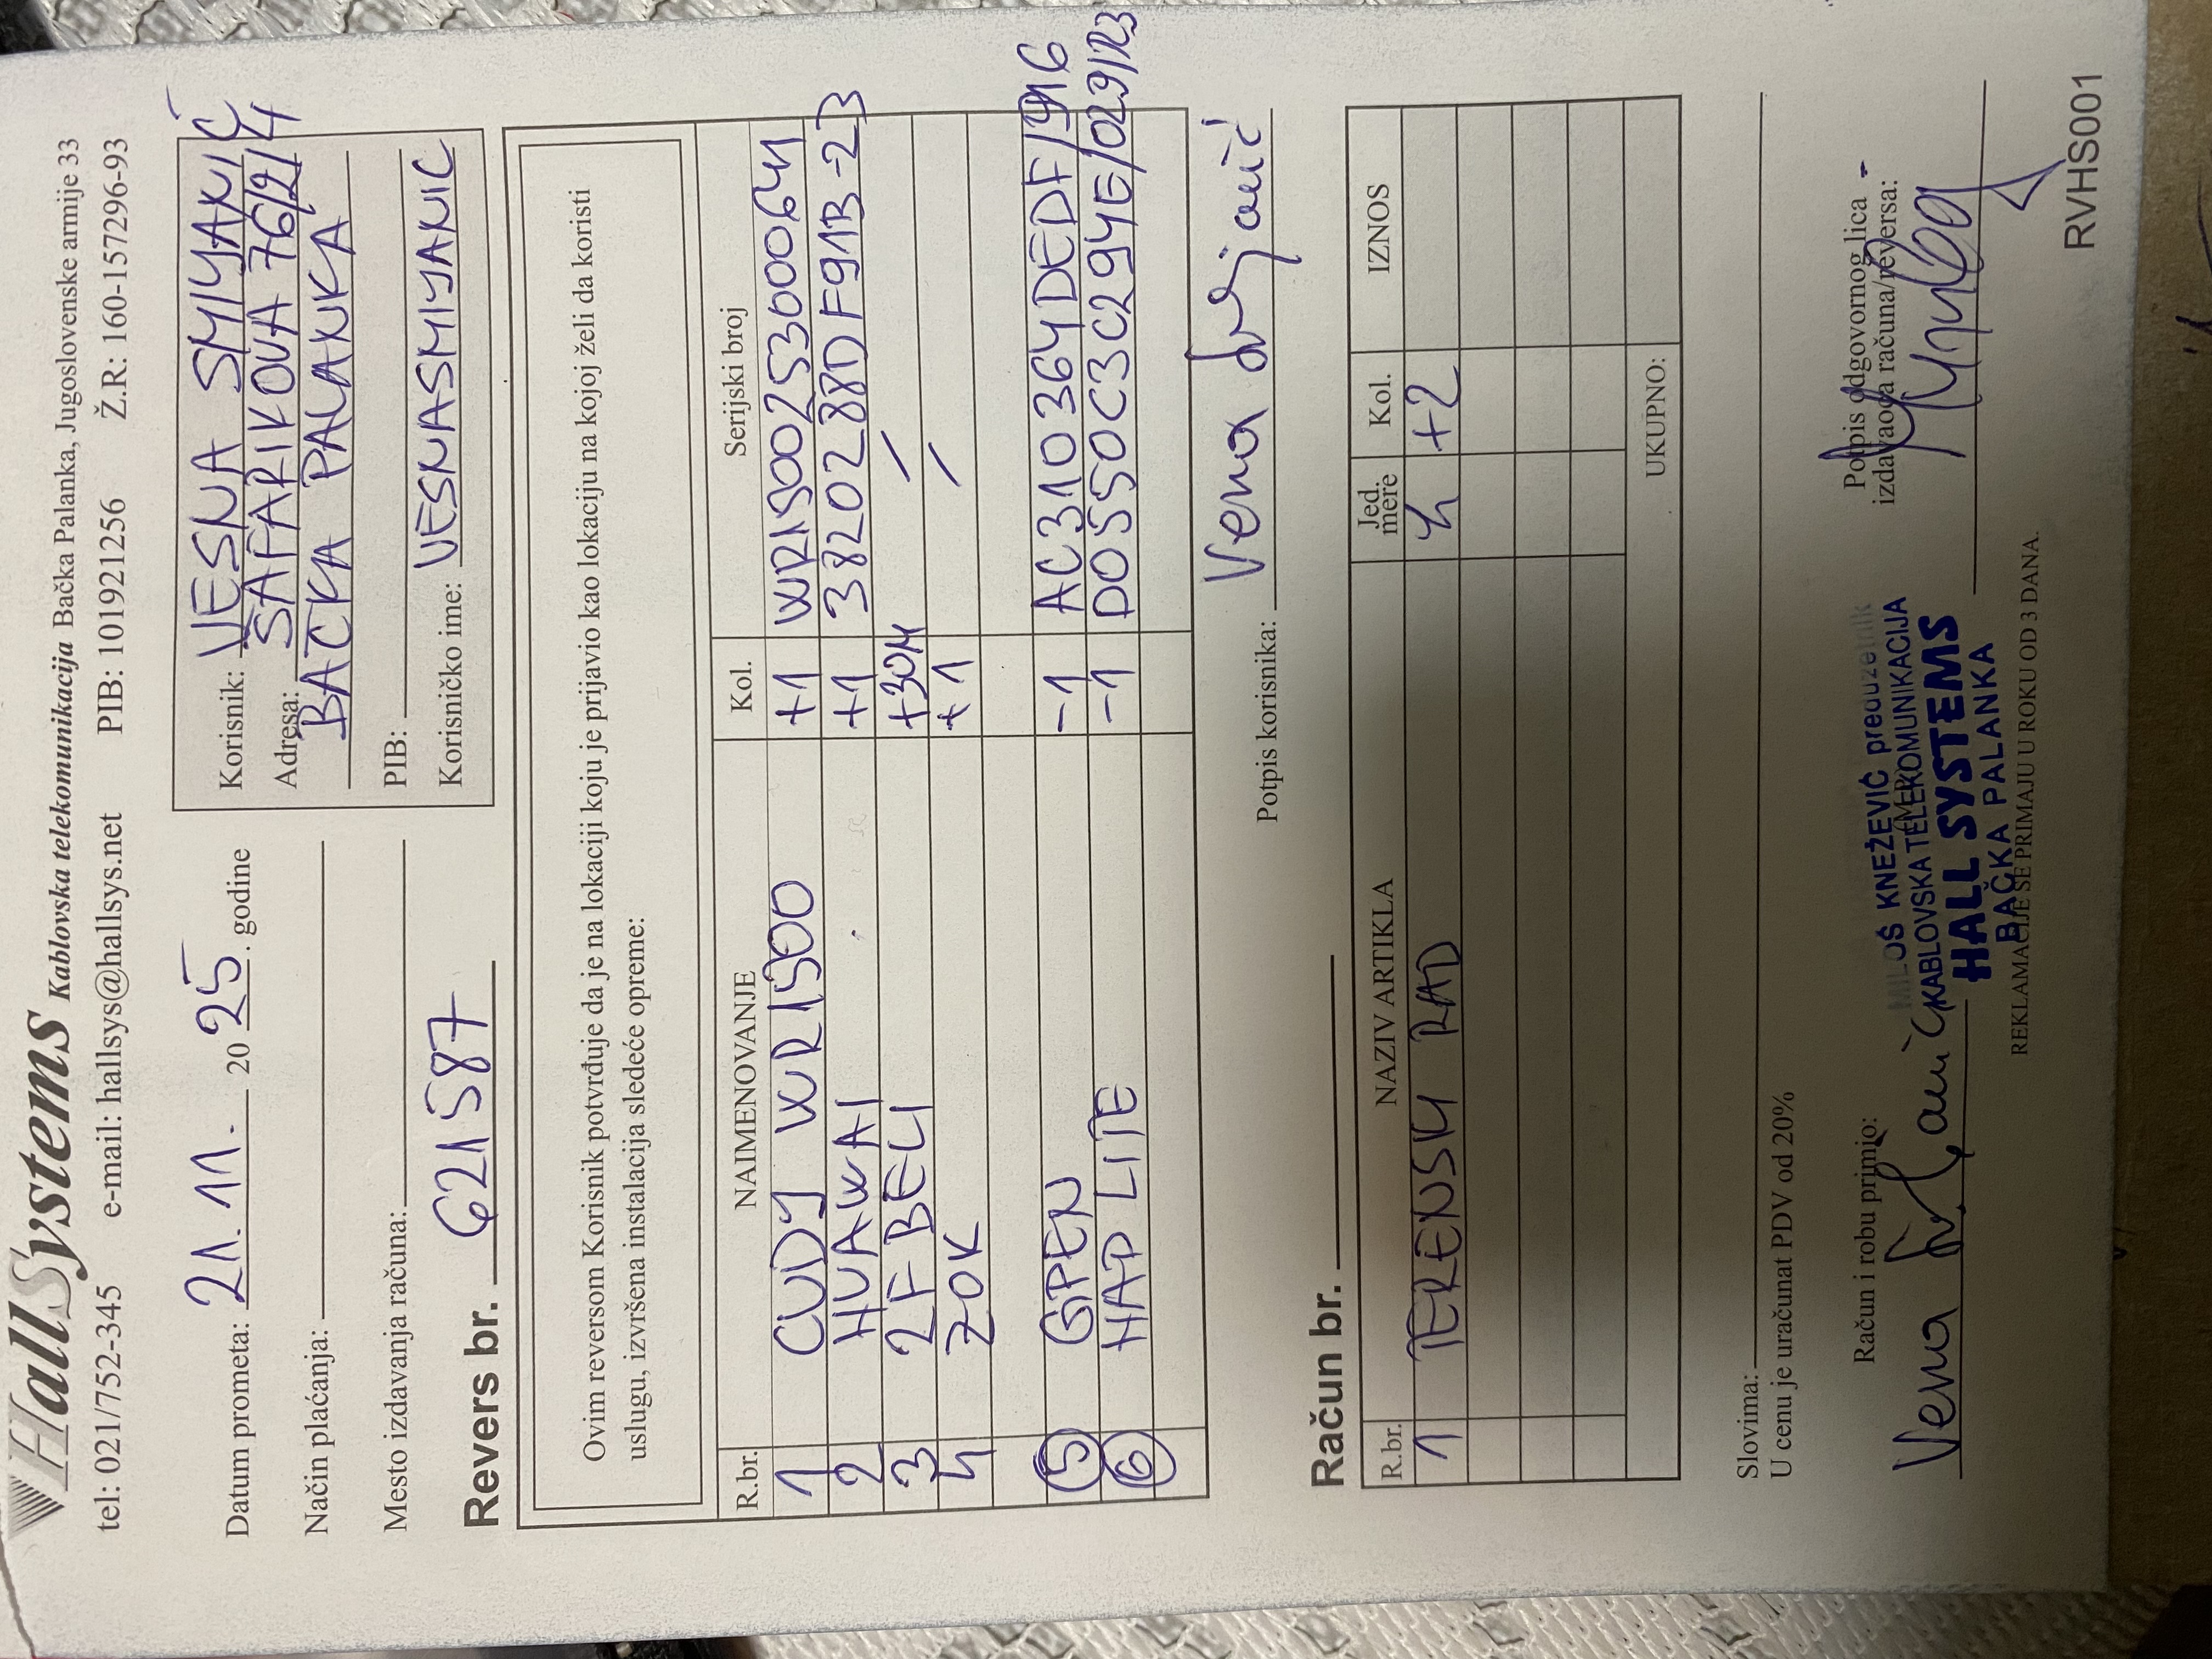 HallSystems Kablovska telekomunikacija Bačka Palanka, Jugoslovenske armije 33
tel: 021/752-345 e-mail: hallsys@hallsys.net PIB: 101921256 Ž.R: 160-157296-93
Datum prometa: 21.11. 2025. godine
Način plaćanja:
Mesto izdavanja računa:
Korisnik: VESNA SMIYANIĆ
Adresa: ŠAFARIKOVA 76/2/4
BAČKA PALANKA
PIB:
Korisničko ime: VESNASMIYANIC
Revers br. 621587
Ovim reversom Korisnik potvrđuje da je na lokaciji koju je prijavio kao lokaciju na kojoj želi da koristi
uslugu, izvršena instalacija sledeće opreme:
R.br. NAIMENOVANJE Kol. Serijski broj
1 CUDY WR1500 +1 WR15002530006441
2 HUAWAI +1 382028DF91B-23
3 2F BELI +30M /
4 ZOK +1 /
5 GPEN -1 AC310364DEDF/916
6 HAP LITE -1 D0550C3C294E/029/R3
Potpis korisnika: Vesna
Račun br.
R.br. NAZIV ARTIKLA Jed. mere Kol. IZNOS
1 TERENSKI RAD h +2
UKUPNO:
Slovima:
U cenu je uračunat PDV od 20%
Račun i robu primio:
Vesna
MILOŠ KNEŽEVIĆ preduzetnik
KABLOVSKA TELEKOMUNIKACIJA
HALL SYSTEMS
BAČKA PALANKA
Potpis odgovornog lica -
izdavaoca računa/reversa:
REKLAMACIJE SE PRIMAJU U ROKU OD 3 DANA.
RVHS001